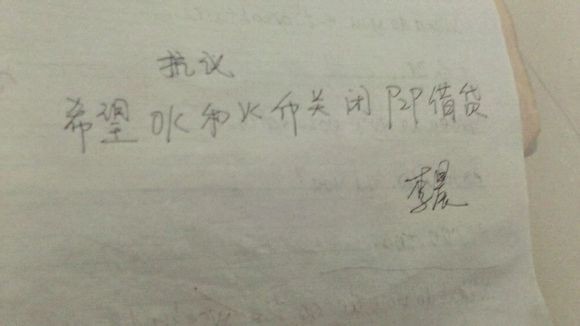 抗议
希望 OK和火币关闭P2P借贷
李晨